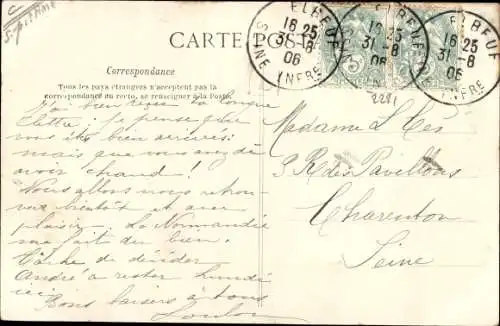 CARTE POSTALE
ELBEUF
SEINE INFRE
16 25
31-8
06
ELBEUF
16 25
31-8
06
INFRE
2281
Correspondance
Tous les pays étrangers n'acceptent pas la
correspondance au recto, se renseigner à la Poste.
J'ai bien reçu ta longue
lettre; je pense que
vous êtes bien arrivés
mais que vous avez dû
avoir chaud!
Nous allons nous retrou-
ver bientôt et avec
plaisir. La Normandie
me fait du bien.
Tâche de décider
André à rester lundi
ici
Bons baisers à tous
Loulou
Madame L
3 R des Pavillons
Charenton
Seine